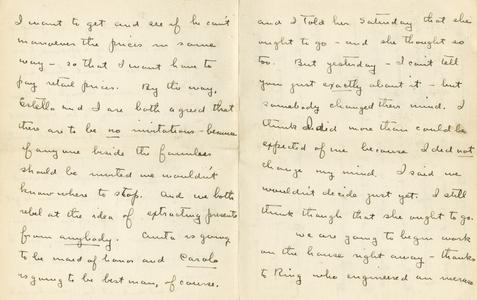 I want to get and see if he can't
manoeuver the prices in some
way - so that I won't have to
pay retail prices. By the way,
Estella and I are both agreed that
there are to be no invitations - because
if anyone beside the families
should be invited we wouldn't
know where to stop. And we both
rebel at the idea of extracting presents
from anybody. Anita is going
to be maid of honor and Carolo
is going to be best man, of course.
and I told her Saturday that she
ought to go - and she thought so
too. But yesterday - I can't tell
you just exactly about it - but
somebody changed their mind. I
think I did more than could be
expected of me because I did not
change my mind. I said we
wouldn't decide just yet. I still
think though that she ought to go.
We are going to begin work
on the house right away - thanks
to Ring who engineered an